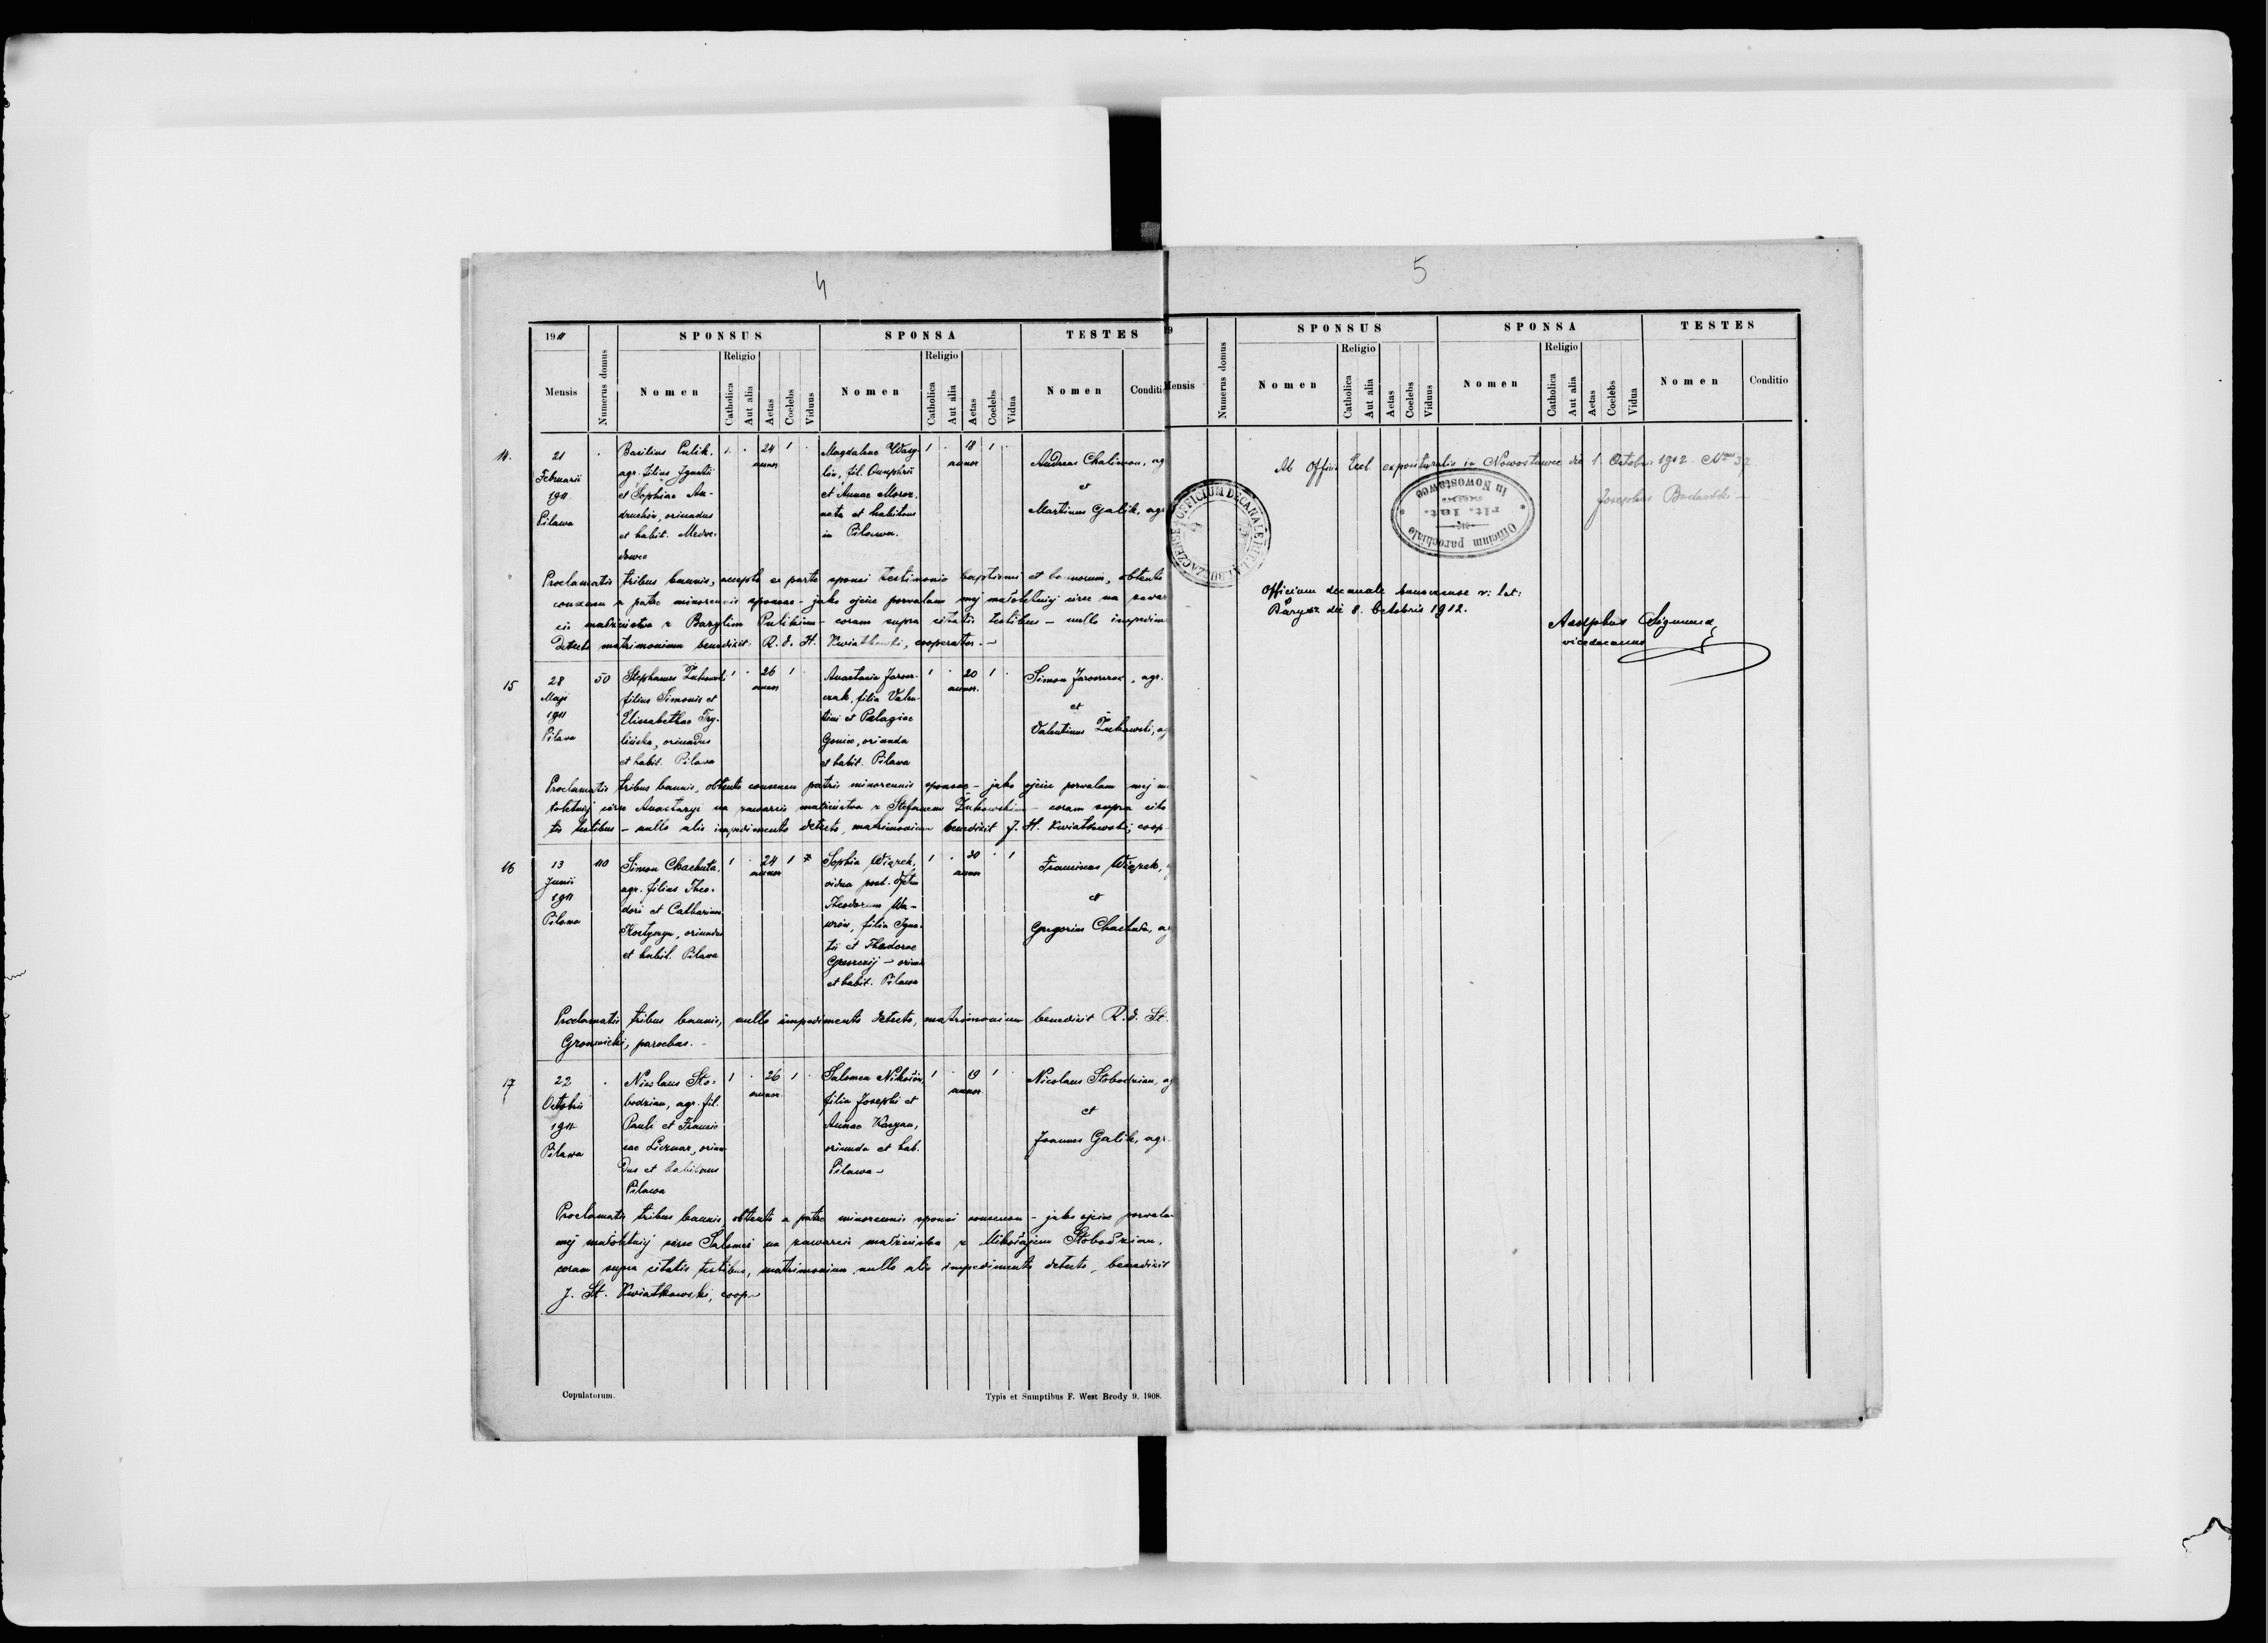 4
1911
SPONSUS
SPONSA
TESTES
Mensis
Numerus domus
Nomen
Religio
Catholica
Aut alia
Aetas
Coelebs
Viduus
Nomen
Religio
Catholica
Aut alia
Aetas
Coelebs
Vidua
Nomen
Conditi
14.
21
Februarii
1911
Pilawa
Basilius Pulik,
agr. filius Ignatii
et Sophiae An-
druchów, oriundus
et habit. Medwe-
dowce
1 . 24 1 .
annor
Magdalena Wasy-
lin, fil. Onuphrii
et Annae Moroz,
nata et habitans
in Pilawa.
1 . 18 1 .
annor
Andreas Chalimon, ag
et
Martinus Galik, agr
Proclamatis tribus bannis, accepto ex parte sponsi testimonio baptismi et bannorum, obtento
consensu a patre minorennis sponsae - jako ojciec pozwalam mej małoletniej córce na zawar
cie małżeństwa z Bazylim Pulikiem - coram supra citatis testibus - nullo impedim
detecto matrimonium benedixit R. d. St. Kwiatkowski, cooperator. -
15
28
Maji
1911
Pilawa
50
Stephanus Żukowski
filius Simonis et
Elisabethae Try-
lińska, oriundus
et habit. Pilawa
1 . 26 1
annor
Anastasia Jawor-
czak, filia Valen-
tini et Pelagiae
Goniec, oriunda
et habit. Pilawa
1 . 20 1 .
annor.
Simon Jaworczak, agr.
et
Valentinus Żukowski, ag
Proclamatis tribus bannis, obtento consensu patris minorennis sponsae - jako ojciec pozwalam mej ma
łoletniej córce Anastazyi na zawarcie małżeństwa z Stefanem Żukowskim - coram supra cita
tis testibus - nullo alio impedimento detecto, matrimonium benedixit J. St. Kwiatkowski, coop
16
13
Junii
1911
Pilawa
110
Simon Chachuła,
agr. filius Theo-
dori et Catharinae
oriundus
et habit. Pilawa
1 . 24 1
annor
Sophia Wiązek,
vidua post
Theodorum
filia Igna-
tii et Theodorae
oriun
et habit. Pilawa
1 . 30 . 1
annor
Franciscus Wiązek,
et
Gregorius Chachuła, ag
Proclamatis tribus bannis, nullo impedimento detecto, matrimonium benedixit R. d. St.
Gromnicki, parochus. -
17
22
Octobris
1911
Pilawa
Nicolaus Sło-
bodzian, agr. fil.
Pauli et Francis
cae Licznar, oriun
dus et habitans
Pilawa
1 . 26 1 .
annor.
Salomea Nikołów,
filia Josephi et
Annae Kaszan,
oriunda et hab.
Pilawa -
1 . 19 1 .
annor
Nicolaus Słobodzian, ag
et
Joannes Galik, agr.
Proclamatis tribus bannis, obtento a patre minorennis sponsi consensu - jako ojciec pozwala
mej małoletniej córce Salomei na zawarcie małżeństwa z Mikołajem Słobodzian,
coram supra citatis testibus, matrimonium nullo alio impedimento detecto, benedixit
J. St. Kwiatkowski, coop.
Copulatorum.
Typis et Sumptibus F. West Brody 9. 1908.
5
19
SPONSUS
SPONSA
TESTES
Mensis
Numerus domus
Nomen
Religio
Catholica
Aut alia
Aetas
Coelebs
Viduus
Nomen
Religio
Catholica
Aut alia
Aetas
Coelebs
Vidua
Nomen
Conditio
Ab Officio Eccl expositurali in Nowostawce die 1. Octobris 1912.
Josephus
Officium parochiale
rit. lat.
in Nowostawce
OFFICIUM DECANALE RIT. LAT. BUCZACZENSE
Officium decanale buczacense r: lat:
Barysz die 8. Octobris 1912.
Adolphus Sigmund
vicedecanus